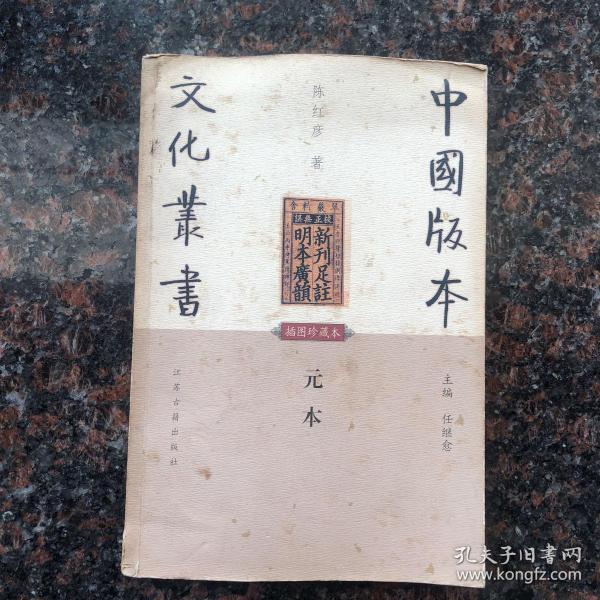 中國版本
文化叢書
陈红彦 著
翠巖精舍
校正無誤
新刊足註
明本廣韻
插图珍藏本
元本
主编 任继愈
江苏古籍出版社
孔夫子旧书网
www.kongfz.com